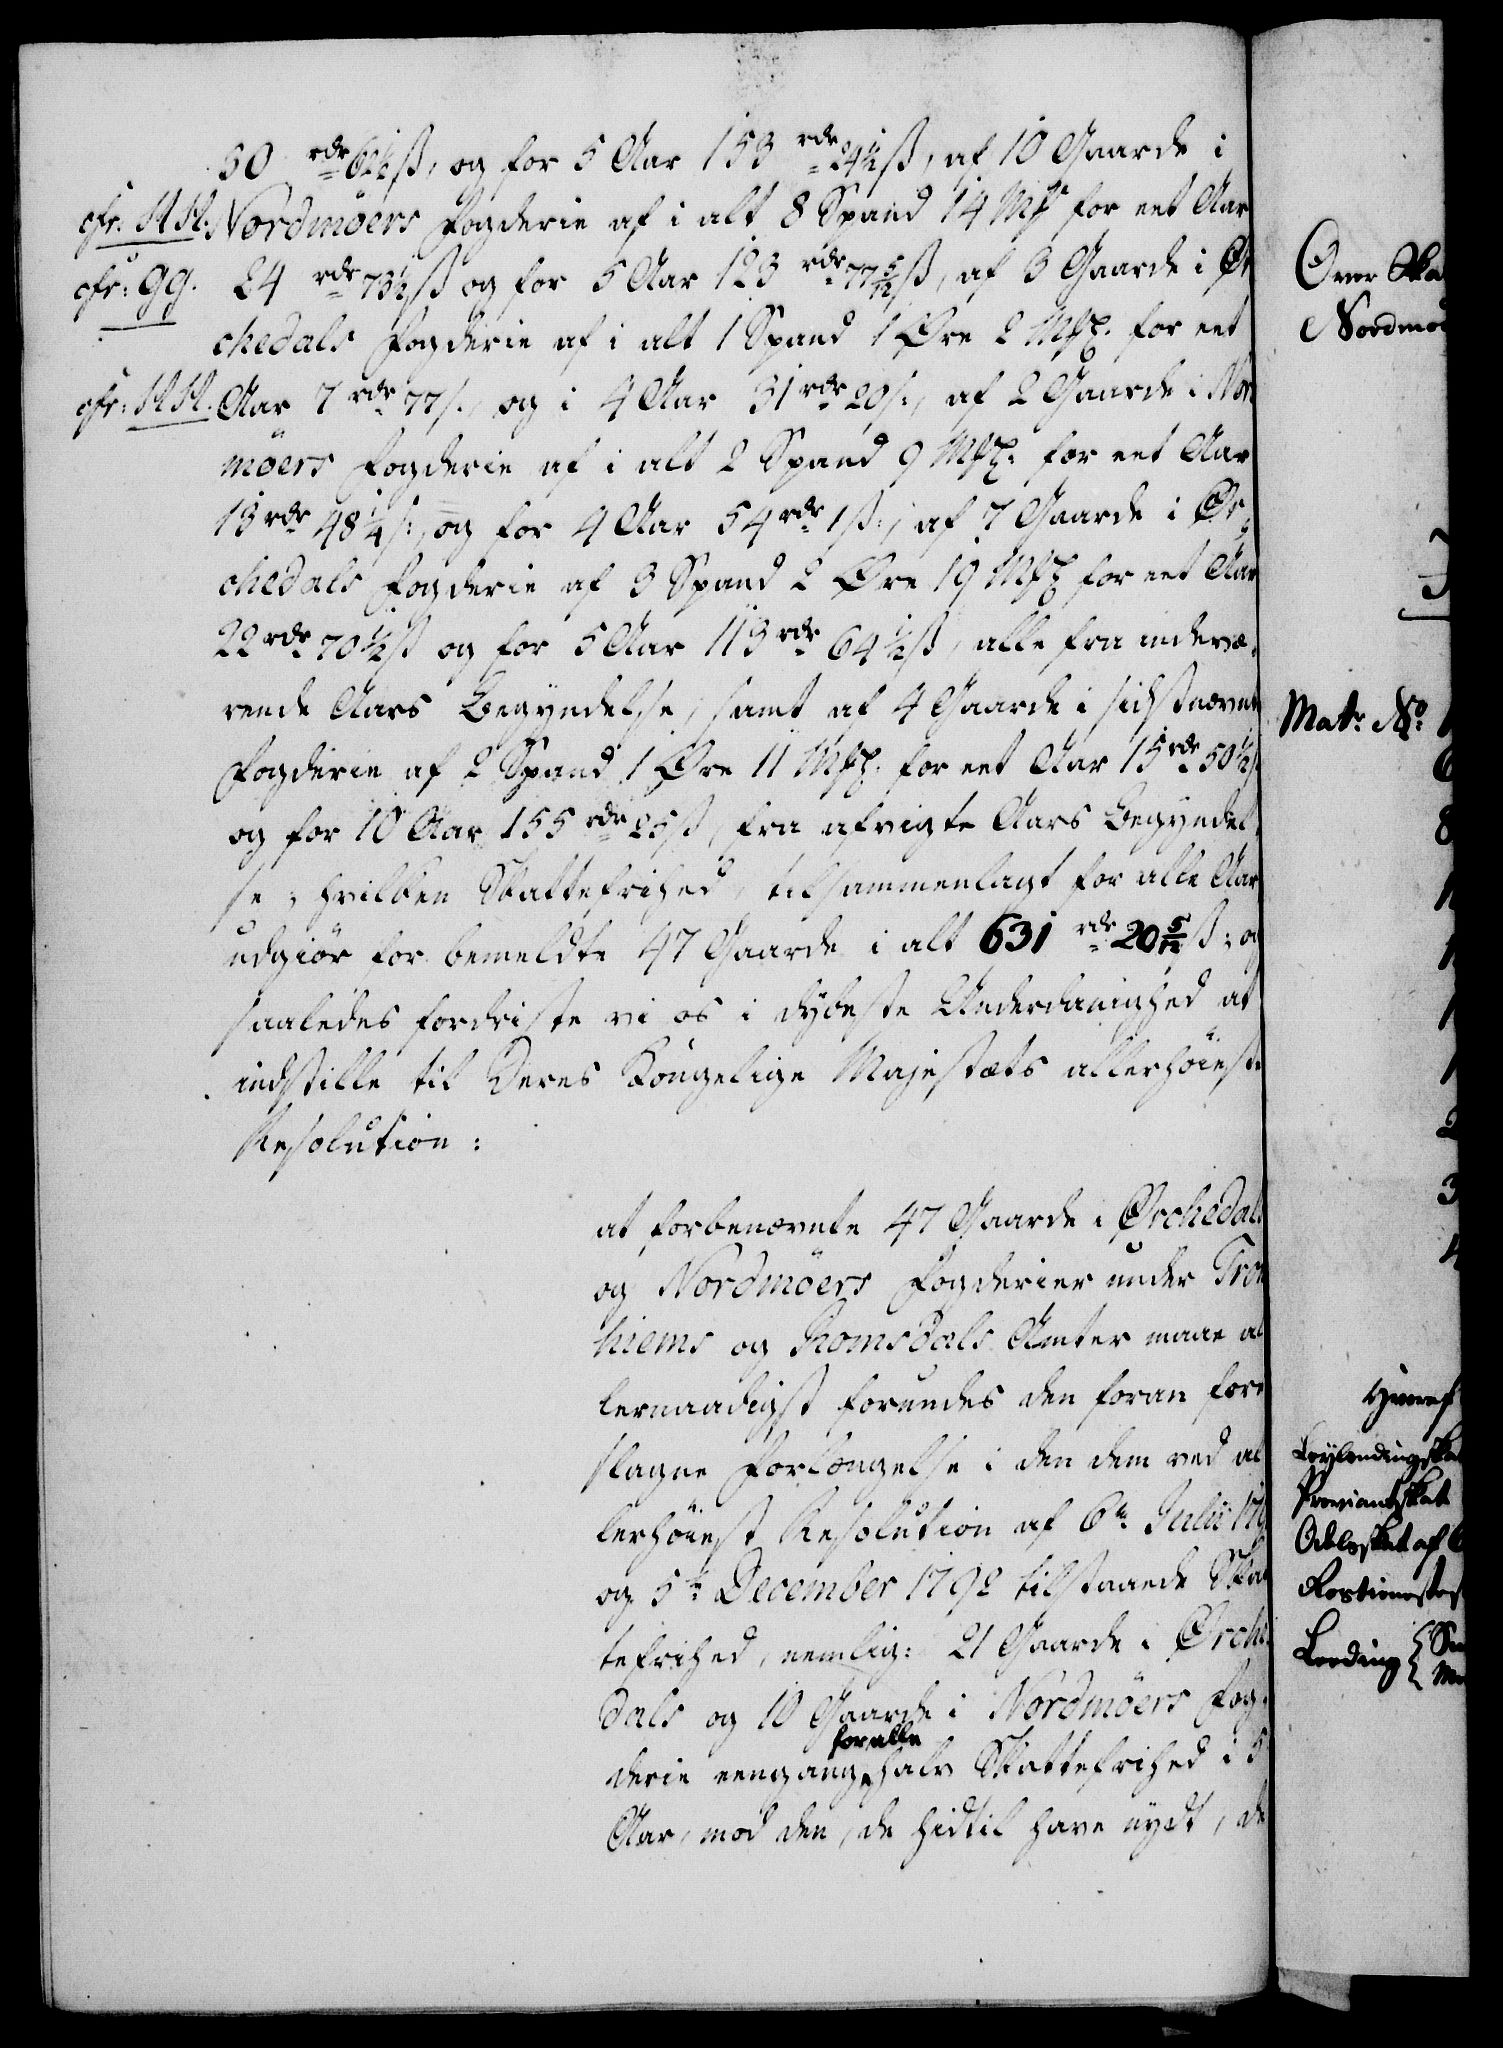 30 rdr 62½ ß, og for 5 Aar 153 rdr 24½ ß, af 10 Gaarde i
cfr: HH. Nordmöers Fogderie af i alt 8 Spand 14 Mk for eet Aar
cfr: gg. 24 rdr 73½ ß og for 5 Aar 123 rdr 77 5/12 ß, af 3 Gaarde i Ør
chedals Fogderie af i alt 1 Spand 1 Øre 2 Mkl: for eet
cfr: HH. Aar 7 rdr 77 ß, og i 4 Aar 31 rdr 20 ß, af 2 Gaarde i Nor
möers Fogderie af i alt 2 Spand 9 Mkl: for eet Aar
13 rdr 48¼ ß, og for 4 Aar 54 rdr 1 ß:, af 7 Gaarde i Ør-
chedals Fogderie af 3 Spand 2 Øre 19 Mkl for eet Aar
22 rdr 70½ ß og for 5 Aar 113 rdr 64½ ß, alle fra indevæ-
rende Aars Begyndelse, samt af 4 Gaarde i sidstnævnte
Fogderie af 2 Spand 1 Øre 11 Mkl: for eet Aar 15 rdr 50½ ß
og for 10 Aar 155 rdr 25 ß, fra afvigte Aars Begyndel-
se; hvilken Skattefrihed, tilsammenlagt for alle Aar
udgiör for bemeldte 47 Gaarde i alt 631 rdr 20 5/12 ß: og
saaledes fordriste vi os i dybeste Underdanighed at
indstille til Deres Kongelige Majestæts allerhöieste
Resolution:
at forbenævnte 47 Gaarde i Ørchedals
og Nordmöers Fogderier under Tron
hiems og Romsdals Amter maae al
lernaadigst forundes den foran fore
slagne Forlængelse i den dem ved al
lerhöiest Resolution af 6te Julii 179
og 5te December 1792 tilstaaede Skat
tefrihed, nemlig: 21 Gaarde i Ørche
dals og 10 Gaarde i Nordmöers Fog-
for alle
derie eengang halv Skattefrihed i 5
Aar, mod den, de hidtil have nydt, de
Over Ska
Nordmöe
Matr No 1
6
8
1
1
1
1
2
3
4
Hvoraf
Leylendingsskat
Proviantskat
Odelsskat af 6
Rostienestes
Leeding { Sm
Me